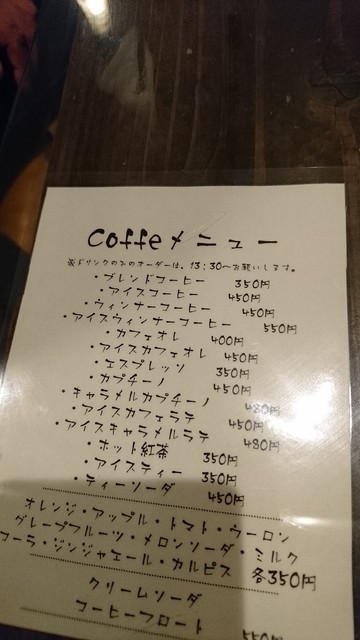 Coffeメニュー
※ドリンクのみのオーダーは、13:30〜お願いします。
・ブレンドコーヒー 350円
・アイスコーヒー 450円
・ウィンナーコーヒー 450円
・アイスウィンナーコーヒー 550円
・カフェオレ 400円
・アイスカフェオレ 450円
・エスプレッソ 350円
・カプチーノ 450円
・キャラメルカプチーノ 480円
・アイスカフェラテ 450円
・アイスキャラメルラテ 480円
・ホット紅茶 350円
・アイスティー 350円
・ティーソーダ 450円
オレンジ・アップル・トマト・ウーロン
グレープフルーツ・メロンソーダ・ミルク
コーラ・ジンジャエール・カルピス 各350円
クリームソーダ
コーヒーフロート
550円